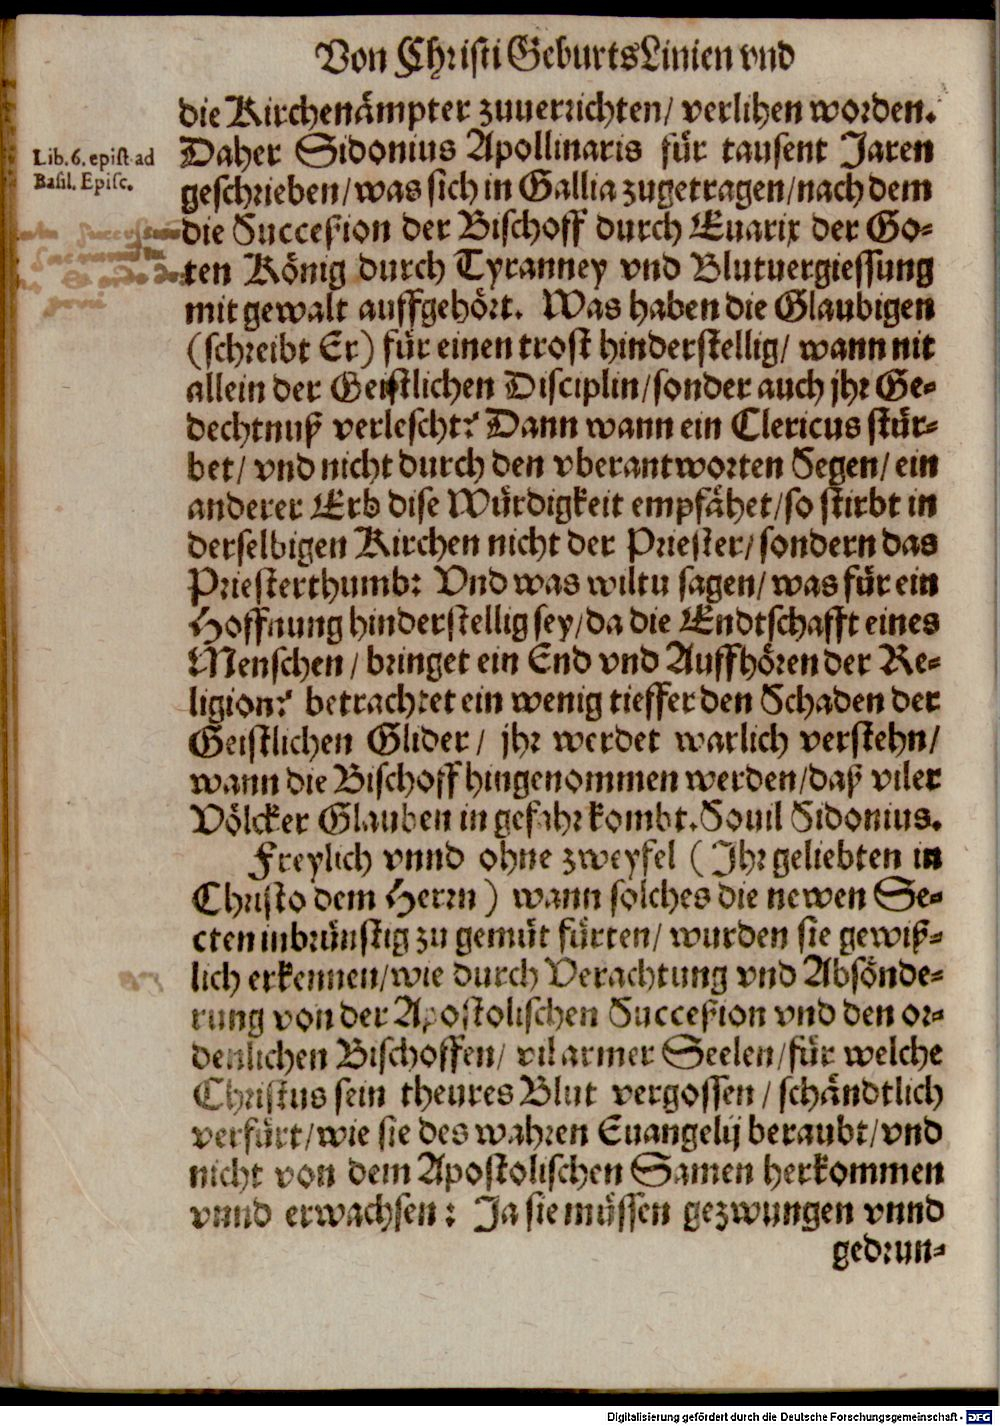 Von Christi GeburtsLinien vnd
die Kirchenämpter zuuerrichten/ verlihen worden.
Lib. 6. epist ad
Basil. Episc.
Daher Sidonius Apollinaris für tausent Jaren
geschrieben/ was sich in Gallia zugetragen/ nach dem
die Succeßion der Bischoff durch Euarix der Go-
ten König durch Tyranney vnd Blutuergiessung
mit gewalt auffgehört. Was haben die Glaubigen
(schreibt Er) für einen trost hinderstellig/ wann nit
allein der Geistlichen Disciplin/ sonder auch jhr Ge-
dechtnuß verlescht? Dann wann ein Clericus stür-
bet/ vnd nicht durch den vberantworten Segen/ ein
anderer Erb dise Würdigkeit empfähet/ so stirbt in
derselbigen Kirchen nicht der Priester/ sondern das
Priesterthumb: Vnd was wiltu sagen/ was für ein
Hoffnung hinderstellig sey/ da die Endtschafft eines
Menschen/ bringet ein End vnd Auffhören der Re-
ligion? betrachtet ein wenig tieffer den Schaden der
Geistlichen Glider/ jhr werdet warlich verstehn/
wann die Bischoff hingenommen werden/ daß viler
Völcker Glauben in gefahr kombt. Souil Sidonius.
Freylich vnnd ohne zweyfel (Ihr geliebten in
Christo dem Herrn) wann solches die newen Se-
cten inbrünstig zu gemüt fürten/ wurden sie gewiß-
lich erkennen/ wie durch Verachtung vnd Absönde-
rung von der Apostolischen Succeßion vnd den or-
denlichen Bischoffen/ vil armer Seelen/ für welche
Christus sein theures Blut vergossen/ schändtlich
verfürt/ wie sie des wahren Euangelij beraubt/ vnd
nicht von dem Apostolischen Samen herkommen
vnnd erwachsen: Ja sie müssen gezwungen vnnd
gedrun-
Digitalisierung gefördert durch die Deutsche Forschungsgemeinschaft - DFG